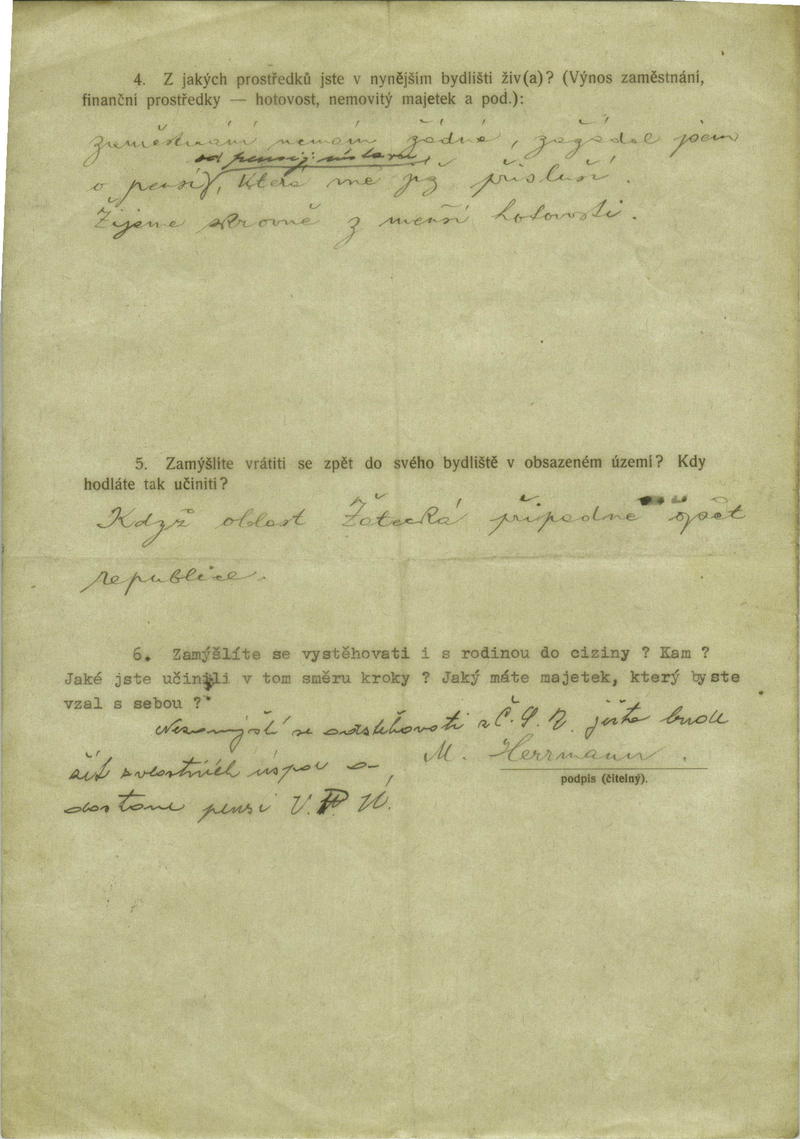 4. Z jakých prostředků jste v nynějším bydlišti živ(a)? (Výnos zaměstnání,
finanční prostředky — hotovost, nemovitý majetek a pod.):
zaměstnání nemám žádné, zažádal jsem
od pensij. ústavu
o pensi, která mě již přísluší.
Žijeme skrovně z menší hotovosti.
5. Zamýšlíte vrátiti se zpět do svého bydliště v obsazeném území? Kdy
hodláte tak učiniti?
Když oblast Žatecká připadne opět
republice.
6. Zamýšlíte se vystěhovati i s rodinou do ciziny ? Kam ?
Jaké jste učinili v tom směru kroky ? Jaký máte majetek, který byste
vzal s sebou ?
Nezamýšlí se odstěhovati z Č.S.R. ješto bude
žít z vlastních úspor a
M. Herrmann.
podpis (čitelný).
dostane pensi V.P.Ú.